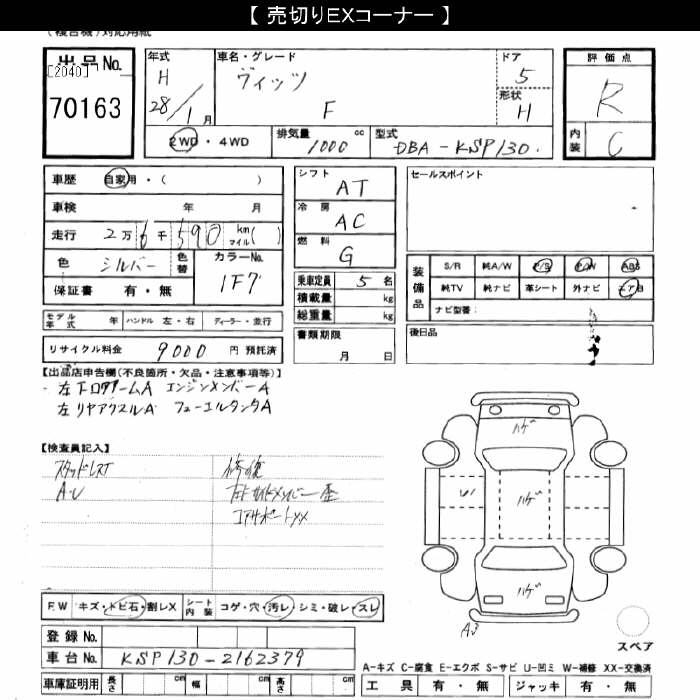 【 売切りEXコーナー 】
(複合機)対応用紙
出品No.
[2040]
70163
年式
H
28/1月
車名・グレード
ヴィッツ
F
ドア
5
形状
H
評価点
R
内装
C
2WD・4WD
排気量
1000 cc
型式
DBA-KSP130
車歴 自家用・( )
車検 年 月
走行 2万6千590 km マイル( )
色 シルバー 色替 カラーNo. 1F7
保証書 有・無
シフト AT
冷房 AC
燃料 G
乗車定員 5名
積載量 kg
総重量 kg
書類期限
月 日
セールスポイント
装備品 S/R 純A/W P/S P/W ABS
純TV 純ナビ 革シート 外ナビ エアB
ナビ型番:
後日品
モデル年式 年 ハンドル 左・右 ディーラー・並行
リサイクル料金 9000 円 預託済
【出品店申告欄(不良箇所・欠品・注意事項等)】
左下ロアアームA エンジンメンバーA
左リヤアクスルA フューエルタンクA
【検査員記入】
スタッドレス
A・U
修復
コアサポートXX
ハゲ
U1
ハゲ
ハゲ
A3
スペア
F.W キズ・トビ石・割レX シート内装 コゲ・穴・汚レ・シミ・破レ・スレ
登録No.
車台No. KSP130-2162379
車庫証明用 長さ cm 幅 cm 高さ cm
A-キズ C-腐食 E-エクボ S-サビ U-凹ミ W-補修 XX-交換済
工具 有・無 ジャッキ 有・無